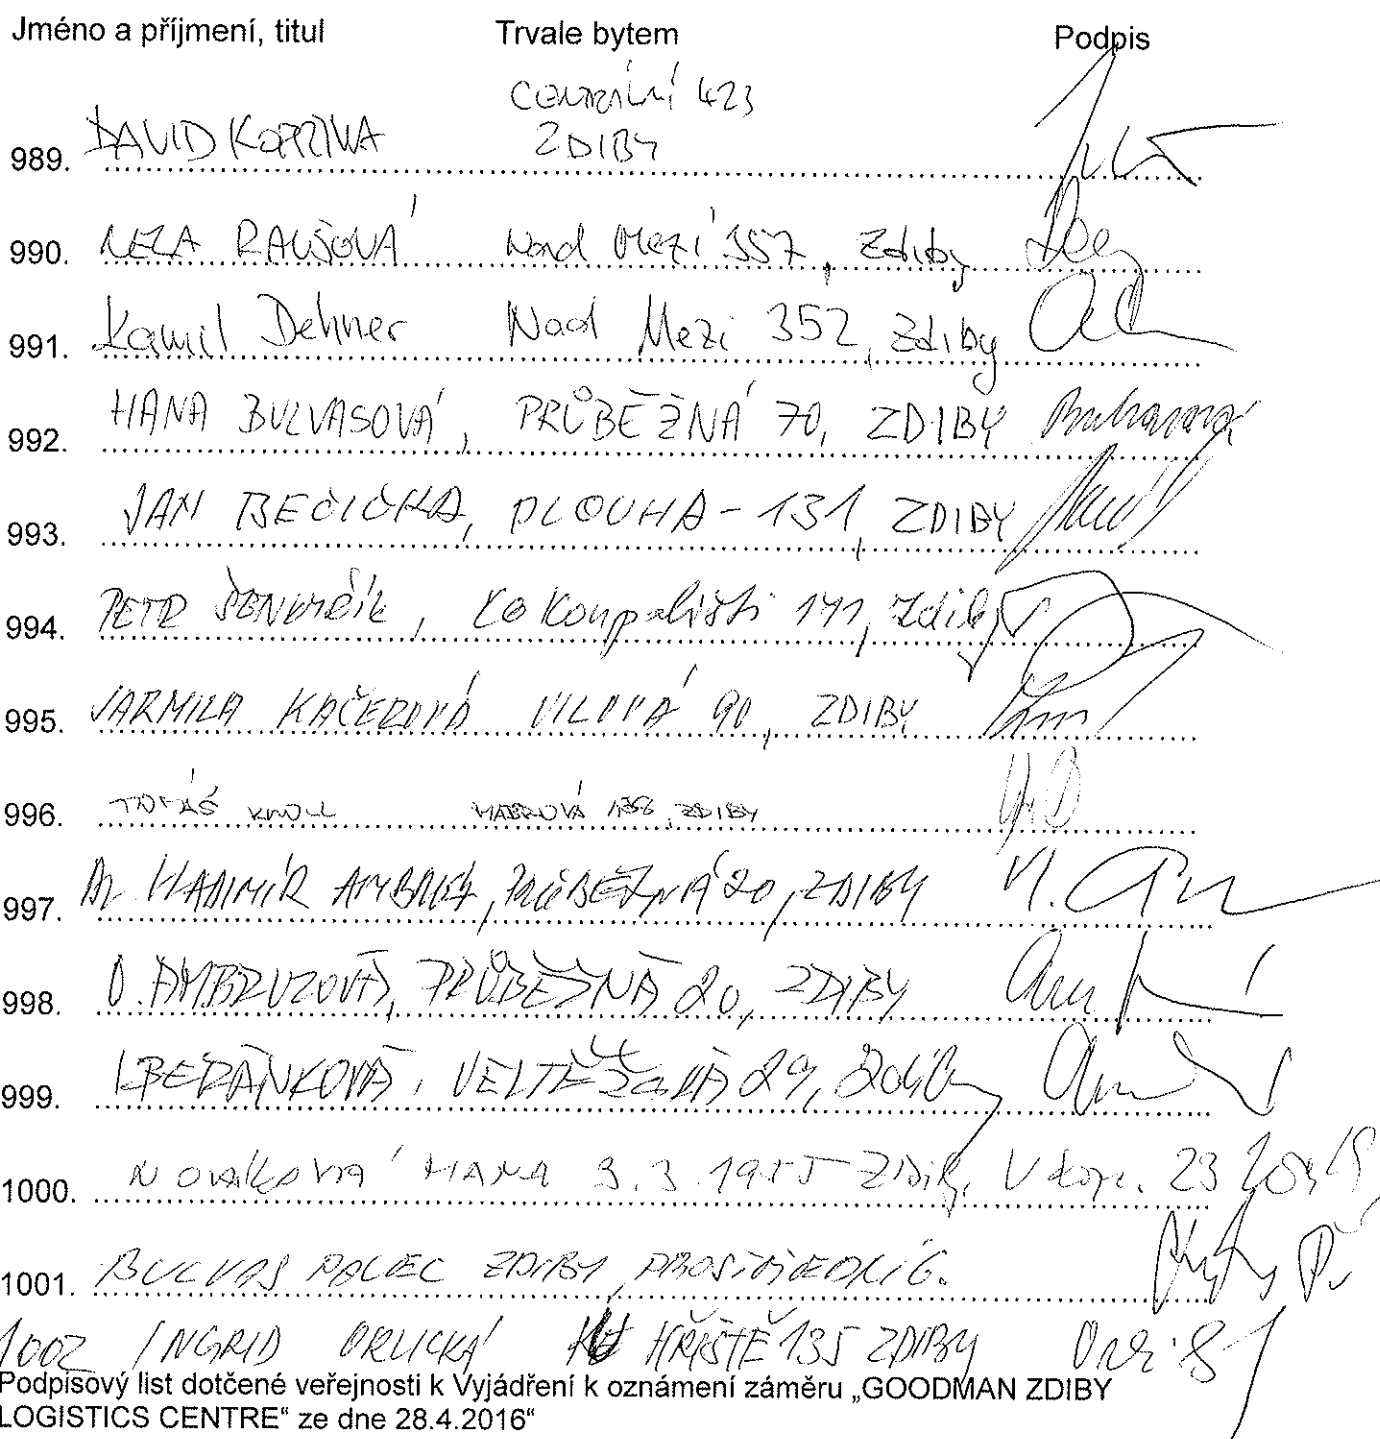 Jméno a příjmení, titul Trvale bytem Podpis
CENTRÁLNÍ 423
989. DAVID KOPŘIVA ZDIBY
990. RAUŠOVÁ Nad Mezí 357, Zdiby
991. Kamil Dehner Nad Mezi 352, Zdiby
992. HANA BULVASOVÁ, PRŮBĚŽNÁ 70, ZDIBY
993. JAN BEČIČKA, DLOUHA-131, ZDIBY
994. PETR, Ke Koupališti 141, Zdiby
995. JARMILA KAČEROVÁ VILOVÁ 90, ZDIBY
996. TOMÁŠ KNOLL 138, ZDIBY
997. VLADIMÍR AMBRUZ, PRŮBĚŽNÁ 20, ZDIBY
998. O. AMBRUZOVÁ, PRŮBĚŽNÁ 20, ZDIBY
999. BERÁNKOVÁ, VELTĚŽSKÁ 29, Zdiby
1000. NOVÁKOVÁ HANA 3.3.1955 Zdiby, V 23
1001. BULVAS ZDIBY PROSTŘEDNÍ 6.
1002 INGRID ORLICKÁ HŘIŠTĚ 135 ZDIBY
Podpisový list dotčené veřejnosti k Vyjádření k oznámení záměru „GOODMAN ZDIBY
LOGISTICS CENTRE“ ze dne 28.4.2016“